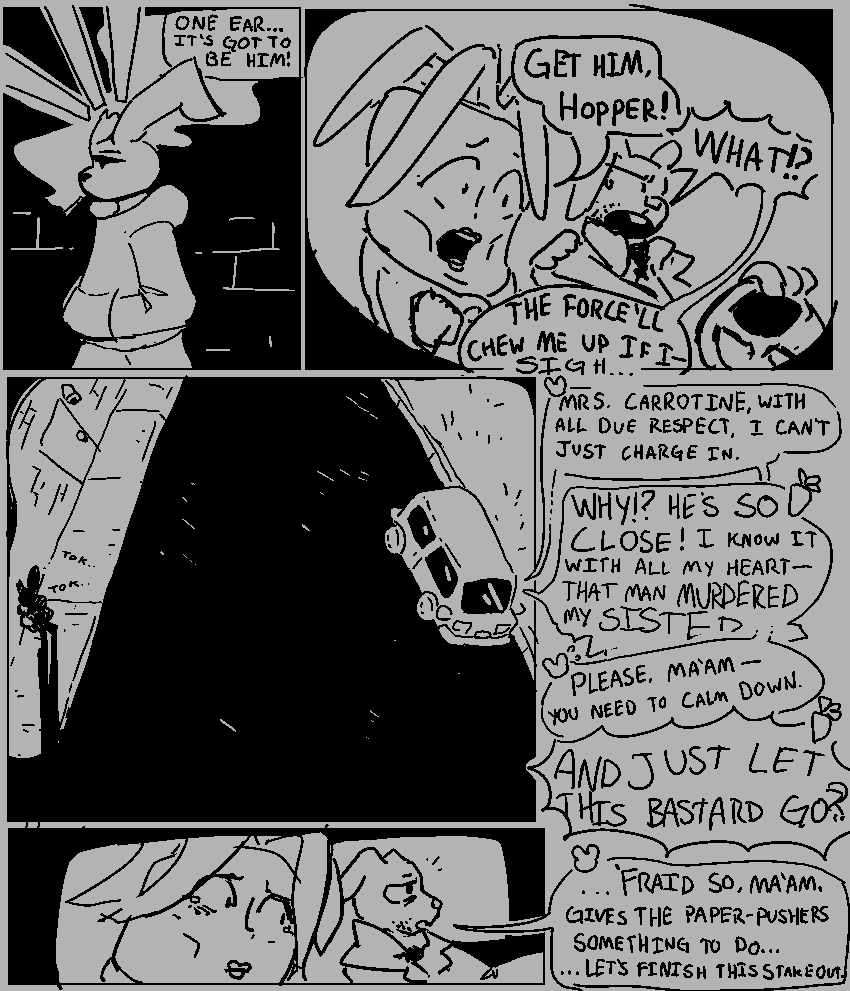 ONE EAR...
IT'S GOT TO
BE HIM!
GET HIM,
HOPPER!
WHAT!?
THE FORCE'LL
CHEW ME UP IF I-
SIGH...
MRS. CARROTINE, WITH
ALL DUE RESPECT, I CAN'T
JUST CHARGE IN.
WHY!? HE'S SO
CLOSE! I KNOW IT
WITH ALL MY HEART—
THAT MAN MURDERED
MY SISTE
TOK..
TOK..
PLEASE, MA'AM—
YOU NEED TO CALM DOWN.
AND JUST LET
THIS BASTARD GO?
... 'FRAID SO, MA'AM.
GIVES THE PAPER-PUSHERS
SOMETHING TO DO...
...LET'S FINISH THIS STAKEOUT.